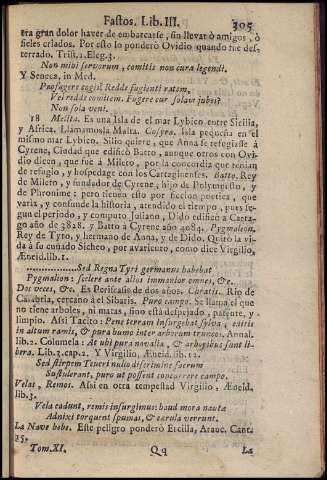 Fastos. Lib. III. 305
era gran dolor haver de embarcarse, sin llevar ò amigos, ò
fieles criados. Por esto lo ponderò Ovidio quando fue des-
terrado. Trist. 1. Eleg. 3.
Non mihi servorum, comitis non cura legendi.
Y Seneca, in Med.
Profugere cogis? Redde fugienti ratem,
Vel redde comitem. Fugere cur solam jubes?
Non sola veni.
18 Melita. Es una Isla de el mar Lybico entre Sicilia,
y Africa. Llamamosla Malta. Cosyra. Isla pequeña en el
mismo mar Lybico. Silio quiere, que Anna se refugiasse à
Cyrene, Ciudad que edificò Batto, aunque otros con Ovi-
dio dicen, que fue à Mileto, por la concordia que tenian
de refugio, y hospedage con los Cartaginenses. Batto. Rey
de Mileto, y fundador de Cyrene; hijo de Polymnesto, y
de Phronime; pero tienen esto por ficcion poetica, que
varia, y confunde la historia, atendido el tiempo, pues se-
gun el periodo, y computo Juliano, Dido edificò à Carta-
go año de 3828. y Batto à Cyrene año 4084. Pygmaleon.
Rey de Tyro, y hermano de Anna, y de Dido. Quitò la vi-
da à su cuñado Sicheo, por avariento, como dice Virgilio,
Æneid. lib. 1.
............... Sed Regna Tyri germanus habebat
Pygmalion: scelere ante alios immanior omnes, &c.
Dot veces, &c. Es Perifrasis de dos años. Chratis. Rio de
Calabria, cercano à el Sibaris. Puro campo. Se llama el que
no tiene arboles, ni matas, sino està despejado, patente, y
limpio. Assi Tacito: Pone terram insurgebat sylva, editis
in altum ramis, & pura humo inter arborum truncos. Annal.
lib. 2. Columela: At ubi pura novalia, & arboribus sunt li-
bera. Lib. 3. cap. 2. Y Virgilio, Æneid. lib. 12.
Sed stirpem Teucri nullo discrimine sacrum
Sustulerant, puro ut possent concurrere campo.
Velas, Remos. Assi en otra tempestad Virgilio, Æneid.
lib. 3.
Vela cadunt, remis insurgimus: haud mora nautæ
Adnixi torquent spumas, & cærula verrunt.
La Nave bebe. Este peligro ponderò Ercilla, Arauc. Cant.
25.
Tom. XI. Qq La